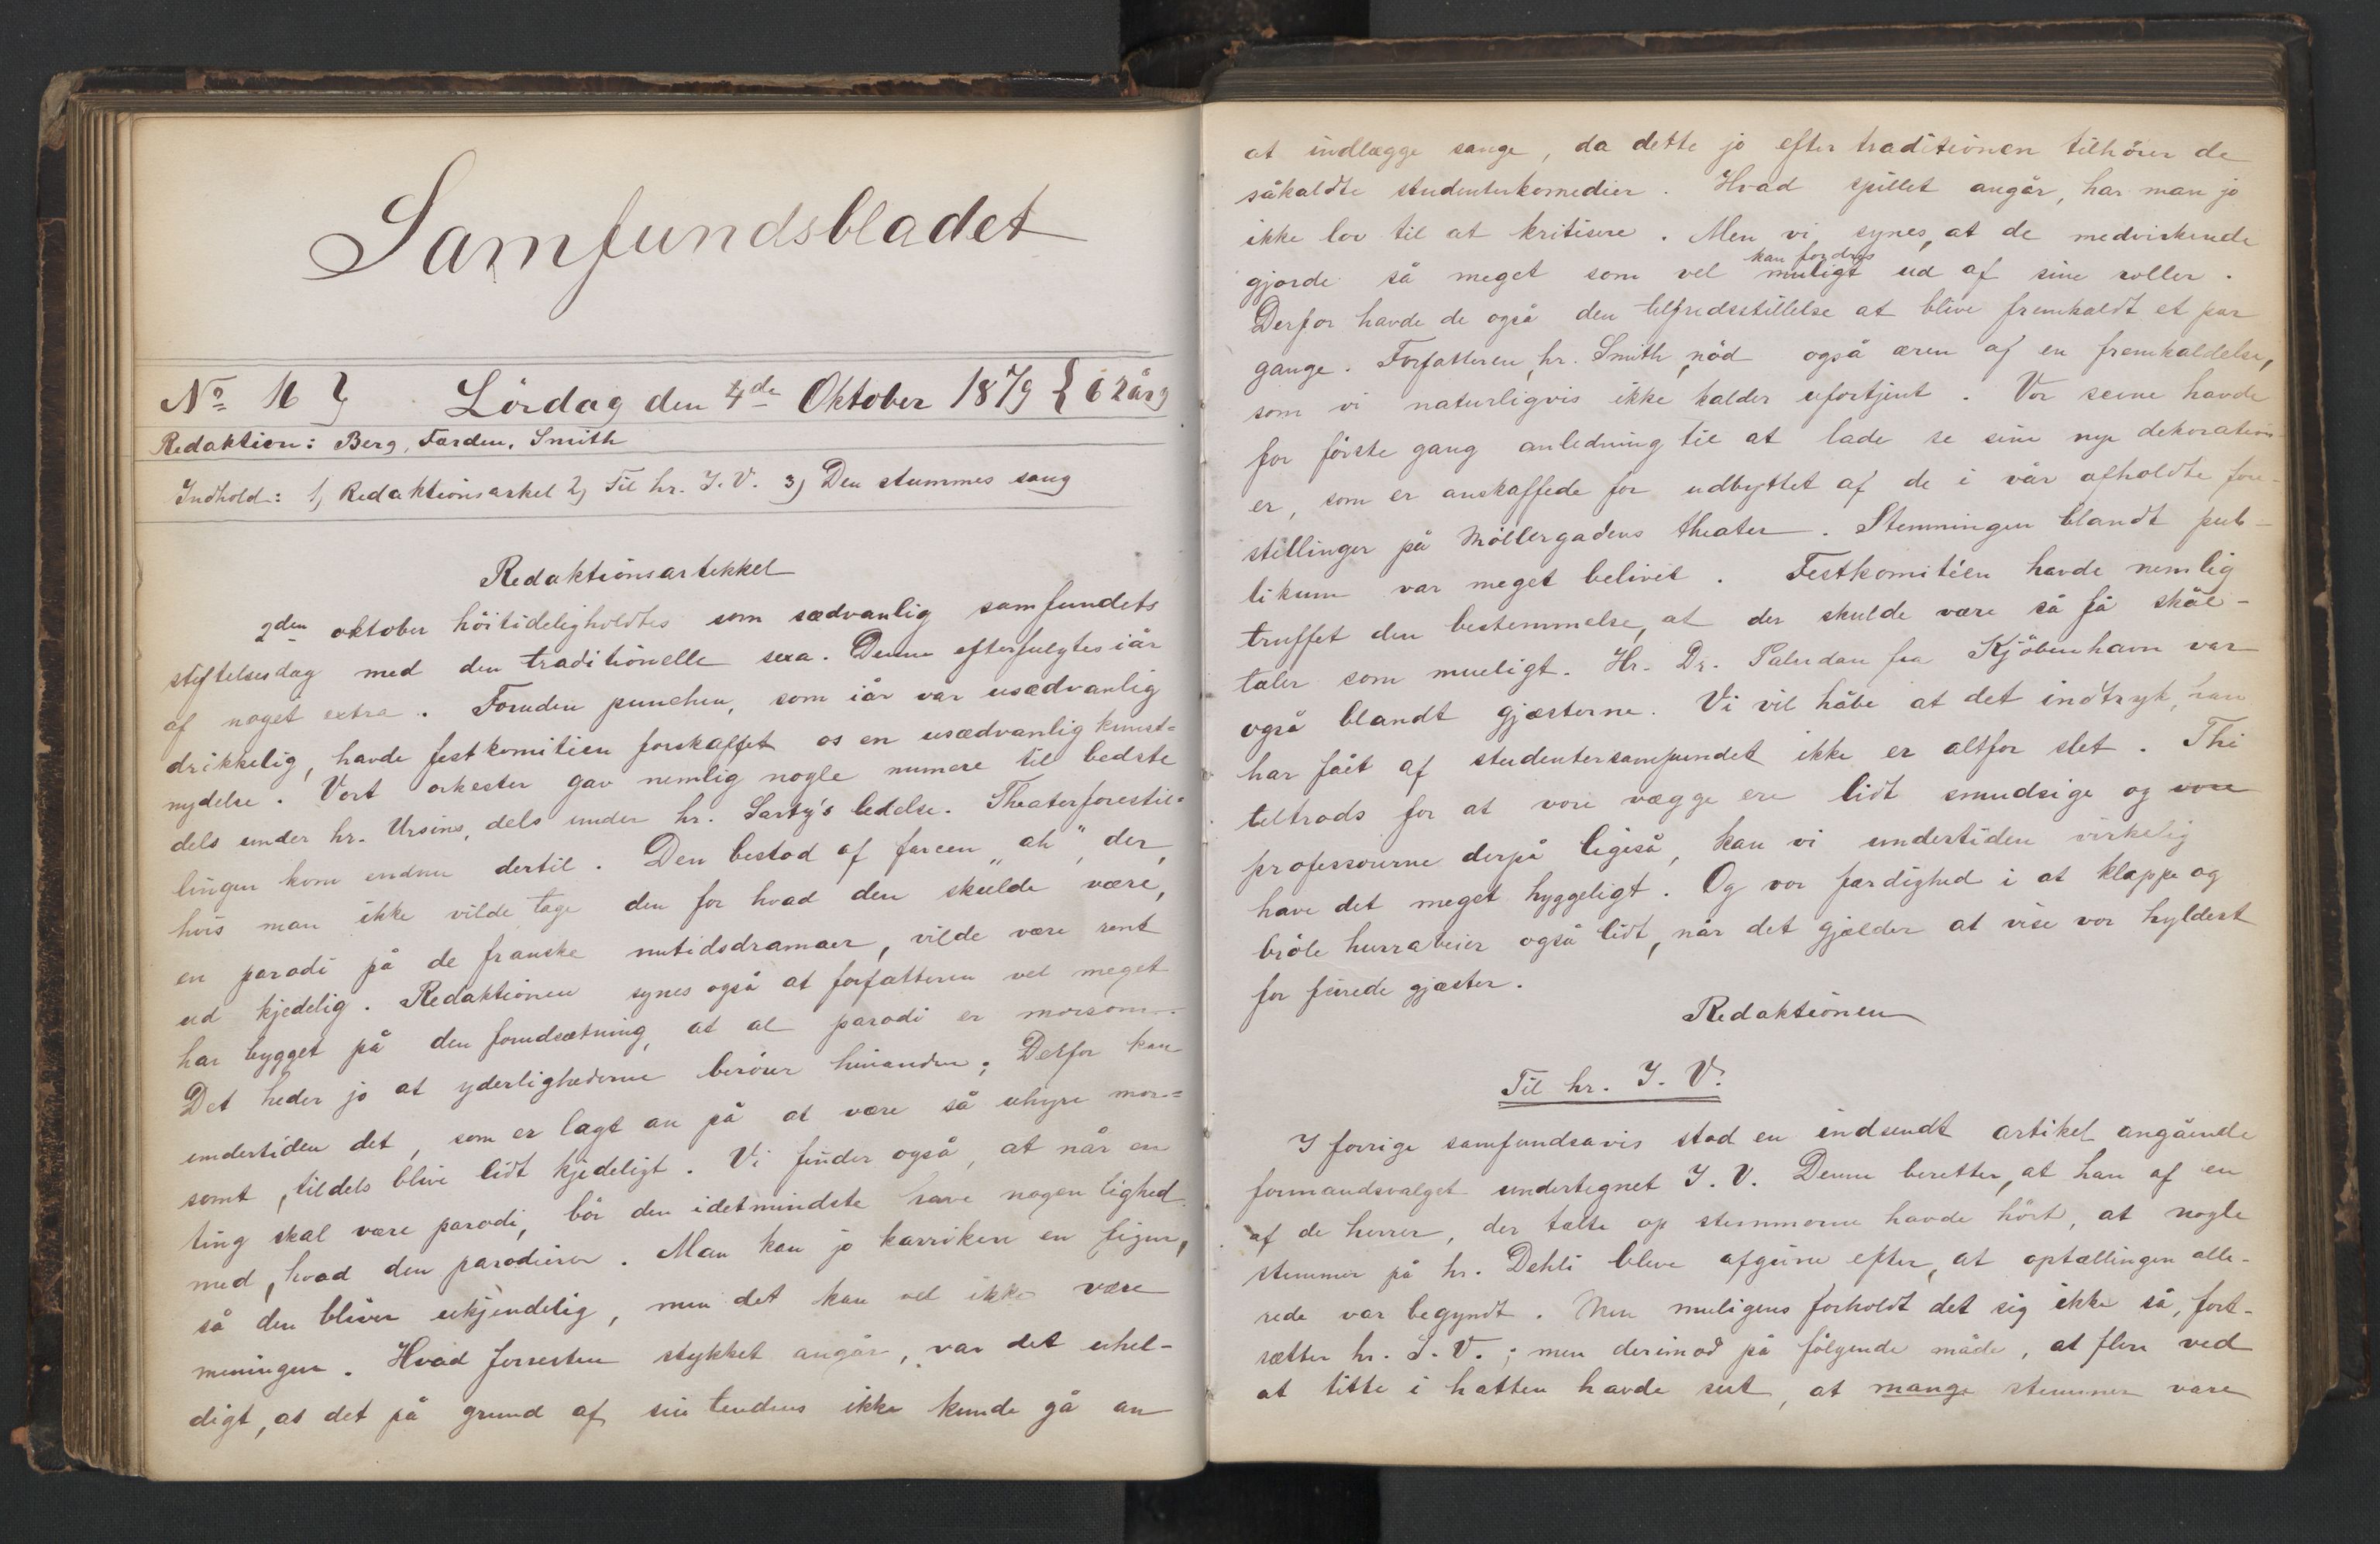 Samfundsbladet
No 16 } Lördag den 4de Oktober 1879 { 62 årg
Redaktion: Berg, Færden, Smith
Indhold: 1, Redaktionsarkel 2, Til hr. J. V. 3, Den stummes sang
Redaktionsartikkel
2den oktober höitideligholdtes som sædvanlig samfundets
stiftelsesdag med den traditionelle sexa. Denne efterfulgtes iår
af noget extra. Foruden punchen, som iår var usædvanlig
drikkelig, havde festkomitien forskaffet os en usædvanlig kunst=
nydelse. Vort orkester gav nemlig nogle numere til bedste
dels under hr. Ursins, dels under hr. Sarty's ledelse. Theaterforestil=
lingen kom endnu dertil. Den bestod af farcen "ah", der,
hvis man ikke vilde tage den for hvad den skulde være,
en parodi på de franske nutidsdramaer, vilde være rent
ud kjedelig. Redaktionen synes også at forfatteren vel meget
har bygget på den forudsætning, at al parodi er morsom.
Det heder jo at yderlighederne berörer hinanden; Derfor kan
undertiden det, som er lagt an på at være så uhyre mor=
somt, tildels blive lidt kjedeligt. Vi finder også, at når en
ting skal være parodi, bör den idetmindste have nogen lighed
med, hvad den parodierer. Man kan jo karrikere en figur,
så den bliver ukjendelig, men det kan vel ikke være
meningen. Hvad forresten stykket angår, var det uhel-
digt, at det på grund af sin tendens ikke kunde gå an
at indlægge sange, da dette jo efter traditionen tilhörer de
såkaldte studenterkomedier. Hvad spillet angår, har man jo
ikke lov til at kritisere. Men vi synes, at de medvirkende
kan fordres
gjorde så meget som vel muligt ud af sine roller.
Derfor havde de også den tilfredsstillelse at blive fremkaldt et par
gange. Forfatteren, hr. Smith, nöd også æren af en fremkaldelse,
som vi naturligvis ikke kalder ufortjent. Vor scene havde
for förste gang anledning til at lade se sine nye dekoration-
er, som er anskaffede for udbyttet af de i vår afholdte fore-
stillinger på Möllergadens theater. Stemningen blandt pub-
likum var meget belivet. Festkomitéen havde nemlig
truffet den bestemmelse, at der skulde være så få skål-
taler som mueligt. Hr. Dr. Paludan fra Kjöbenhavn var
også blandt gjæsterne. Vi vil håbe at det indtryk, han
har fået af studentersamfundet ikke er altfor slet. Thi
tiltrods for at vore vægge ere lidt smudsige og vore
professorerne derpå ligeså, kan vi undertiden virkelig
have det meget hyggeligt. Og vor færdighed i at klappe og
bröle hurra beier også lidt, når det gjælder at vise vor hyldest
for feirede gjæster.
Redaktionen
Til hr. J. V.
I forrige samfundsavis stod en indsendt artikel angående
formandsvalget undertegnet J. V. Denne beretter, at han af en
af de herrer, der talte op stemmerne havde hört, at nogle
stemmer på hr. Dehli bleve afgivne efter, at optællingen alle-
rede var begyndt. Men muligens forholdt det sig ikke så, fort-
sætter hr. J. V.; men derimod på fölgende måde, at flere ved
at titte i hatten havde seet, at mange stemmer vare